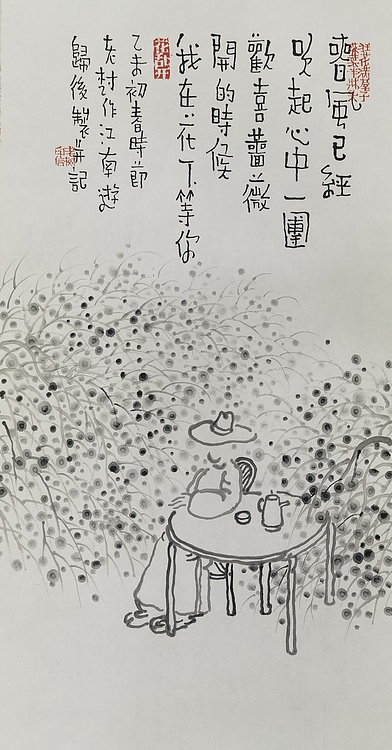 春風已經
吹起心中一團
歡喜薔薇
開的時候
我在花下等你
乙未初春時節
老村作江南遊
歸後製並記